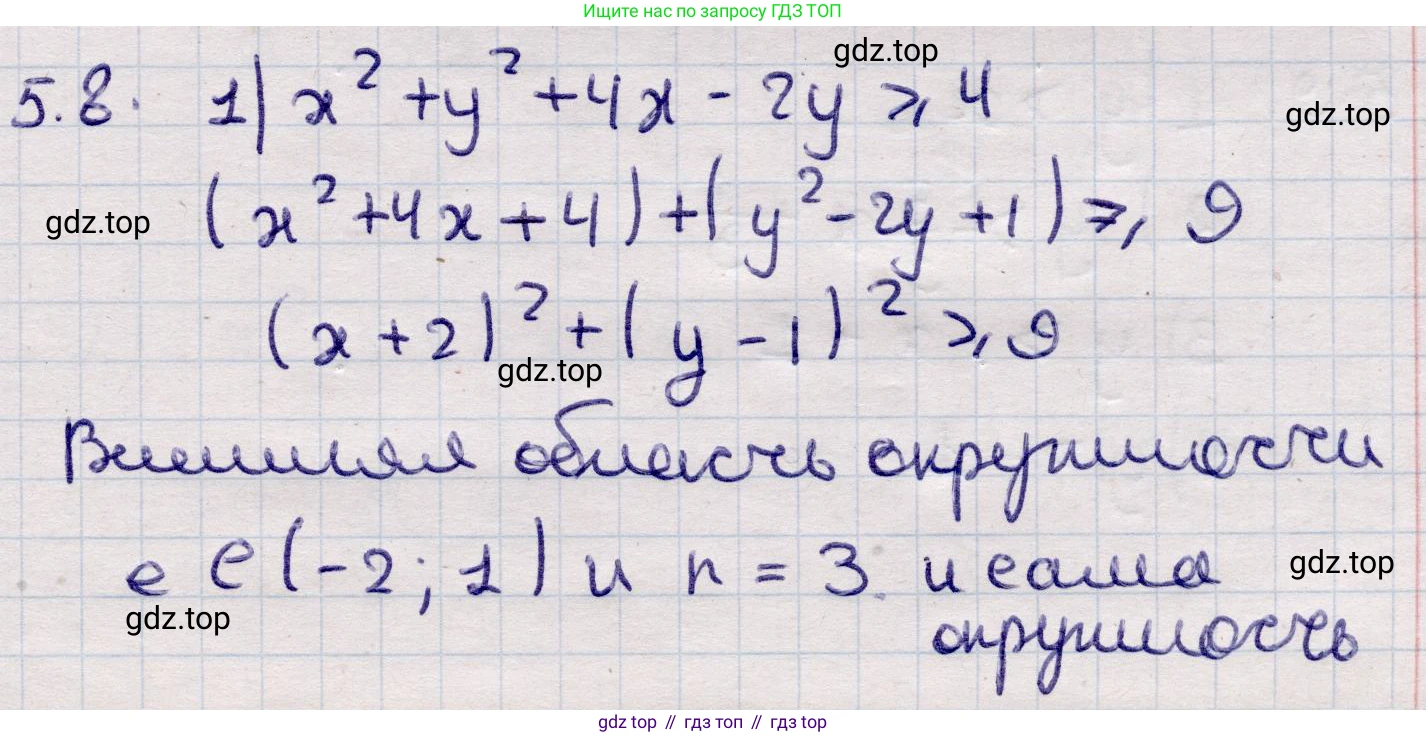 Ищите нас по запросу ГДЗ ТОП
gdz.top
5.8. 1) x² + y² + 4x - 2y ⩾ 4
gdz.top
gdz.top
(x² + 4x + 4) + (y² - 2y + 1) ⩾ 9
(x + 2)² + (y - 1)² ⩾ 9
gdz.top
Внешняя область окружности
с C (-2; 1) и r = 3. и сама
gdz.top
gdz.top
окружность
gdz.top // гдз топ // gdz top